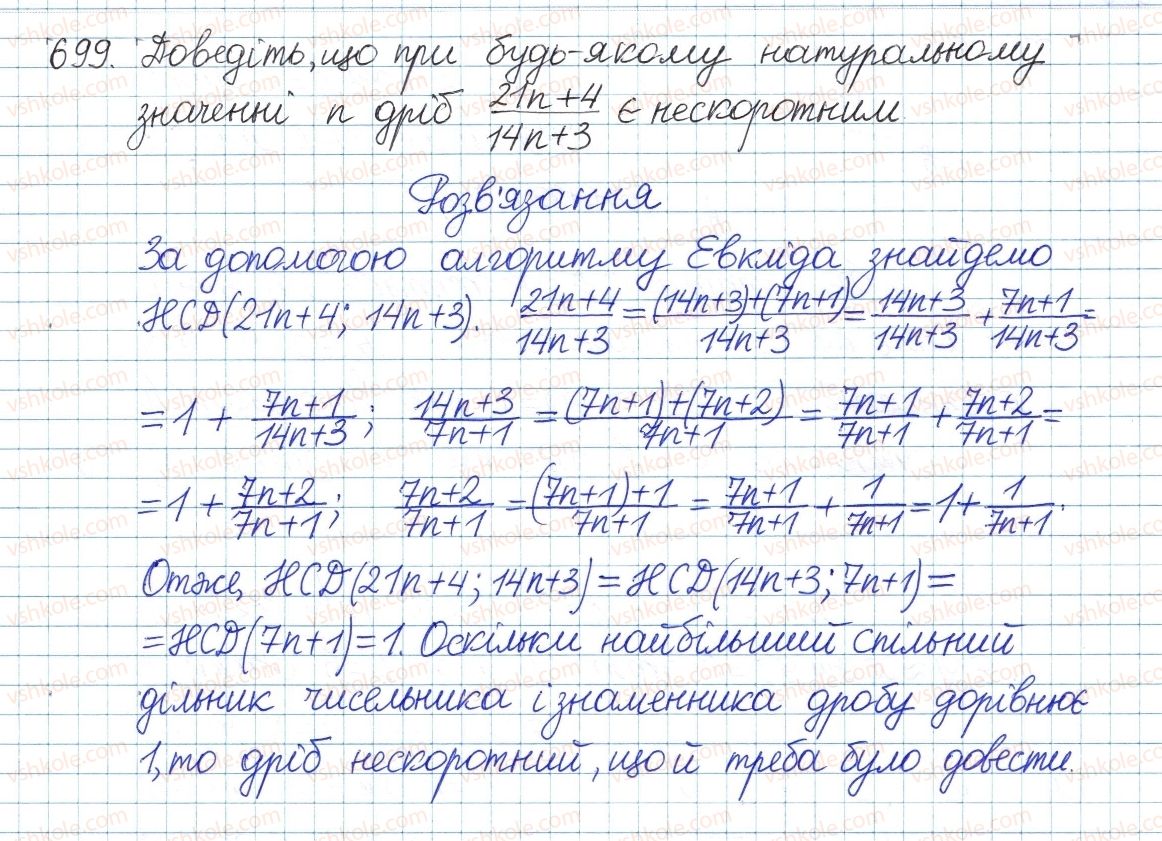 699. Доведіть, що при будь-якому натуральному
значенні n дріб (21n+4)/(14n+3) є нескоротним
Розв'язання
За допомогою алгоритму Евкліда знайдемо
НСD(21n+4; 14n+3). (21n+4)/(14n+3) = ((14n+3)+(7n+1))/(14n+3) = (14n+3)/(14n+3) + (7n+1)/(14n+3) =
= 1 + (7n+1)/(14n+3); (14n+3)/(7n+1) = ((7n+1)+(7n+2))/(7n+1) = (7n+1)/(7n+1) + (7n+2)/(7n+1) =
= 1 + (7n+2)/(7n+1); (7n+2)/(7n+1) = ((7n+1)+1)/(7n+1) = (7n+1)/(7n+1) + 1/(7n+1) = 1 + 1/(7n+1).
Отже, НСD(21n+4; 14n+3) = НСD(14n+3; 7n+1) =
= НСD(7n+1) = 1. Оскільки найбільший спільний
дільник чисельника і знаменника дробу дорівнює
1, то дріб нескоротний, що й треба було довести.